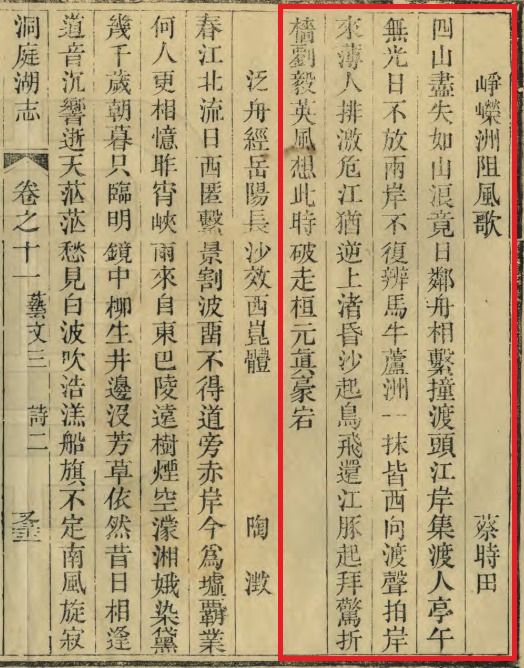 崢嶸洲阻風歌　蔡時田
四山盡失如山浪竟日鄰舟相繫撞渡頭江岸集渡人亭午
無光日不放兩岸不復辨馬牛蘆洲一抹皆西向渡聲拍岸
來薄人排激危江猶逆上渚昏沙起鳥飛還江豚起拜驚折
檣劉毅英風想此時破走桓元眞豪宕
泛舟經岳陽長沙效西崑體　陶澂
春江北流日西匿繫景割波畱不得道旁赤岸今爲墟霸業
何人更相憶昨宵峽雨來自東巴陵遠樹煙空濛湘娥染黛
幾千歲朝暮只臨明鏡中柳生井邊沒芳草依然昔日相逢
道音沉響逝天茫茫愁見白波吹浩漾船旗不定南風旋寂
洞庭湖志　卷之十一　藝文三　詩二